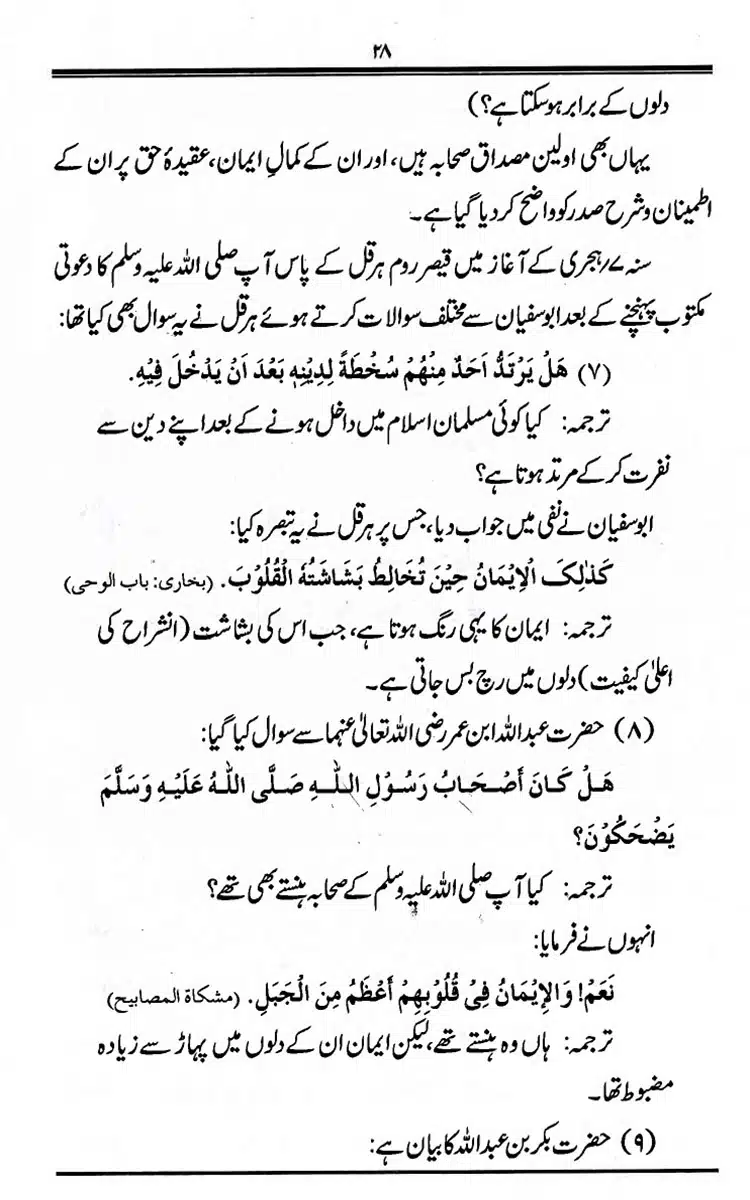 ۲۸
دلوں کے برابر ہوسکتا ہے؟)
یہاں بھی اولین مصداق صحابہ ہیں، اور ان کے کمالِ ایمان، عقیدۂ حق پر ان کے
اطمینان وشرح صدر کو واضح کردیا گیا ہے۔
سنہ ۷؍ہجری کے آغاز میں قیصر روم ہرقل کے پاس آپ صلی اللہ علیہ وسلم کا دعوتی
مکتوب پہنچنے کے بعد ابوسفیان سے مختلف سوالات کرتے ہوئے ہرقل نے یہ سوال بھی کیا تھا:
(۷) هَلْ یَرْتَدُّ اَحَدٌ مِنْهُمْ سُخْطَةً لِدِیْنِهٖ بَعْدَ اَنْ یَدْخُلَ فِیْهِ.
ترجمہ: کیا کوئی مسلمان اسلام میں داخل ہونے کے بعد اپنے دین سے
نفرت کرکے مرتد ہوتا ہے؟
ابوسفیان نے نفی میں جواب دیا، جس پر ہرقل نے یہ تبصرہ کیا:
کَذٰلِکَ الْاِیْمَانُ حِیْنَ تُخَالِطُ بَشَاشَتُهٗ الْقُلُوْبَ. (بخاری: باب الوحی)
ترجمہ: ایمان کا یہی رنگ ہوتا ہے، جب اس کی بشاشت (انشراح کی
اعلیٰ کیفیت) دلوں میں رچ بس جاتی ہے۔
(۸) حضرت عبداللہ ابن عمر رضی اللہ تعالیٰ عنہما سے سوال کیا گیا:
هَلْ کَانَ أَصْحَابُ رَسُوْلِ اللّٰهِ صَلَّی اللّٰهُ عَلَیْهِ وَسَلَّمَ
یَضْحَکُوْنَ؟
ترجمہ: کیا آپ صلی اللہ علیہ وسلم کے صحابہ ہنستے بھی تھے؟
انہوں نے فرمایا:
نَعَمْ! وَالْاِیْمَانُ فِیْ قُلُوْبِهِمْ أَعْظَمُ مِنَ الْجَبَلِ. (مشکاة المصابیح)
ترجمہ: ہاں وہ ہنستے تھے، لیکن ایمان ان کے دلوں میں پہاڑ سے زیادہ
مضبوط تھا۔
(۹) حضرت بکر بن عبداللہ کا بیان ہے: